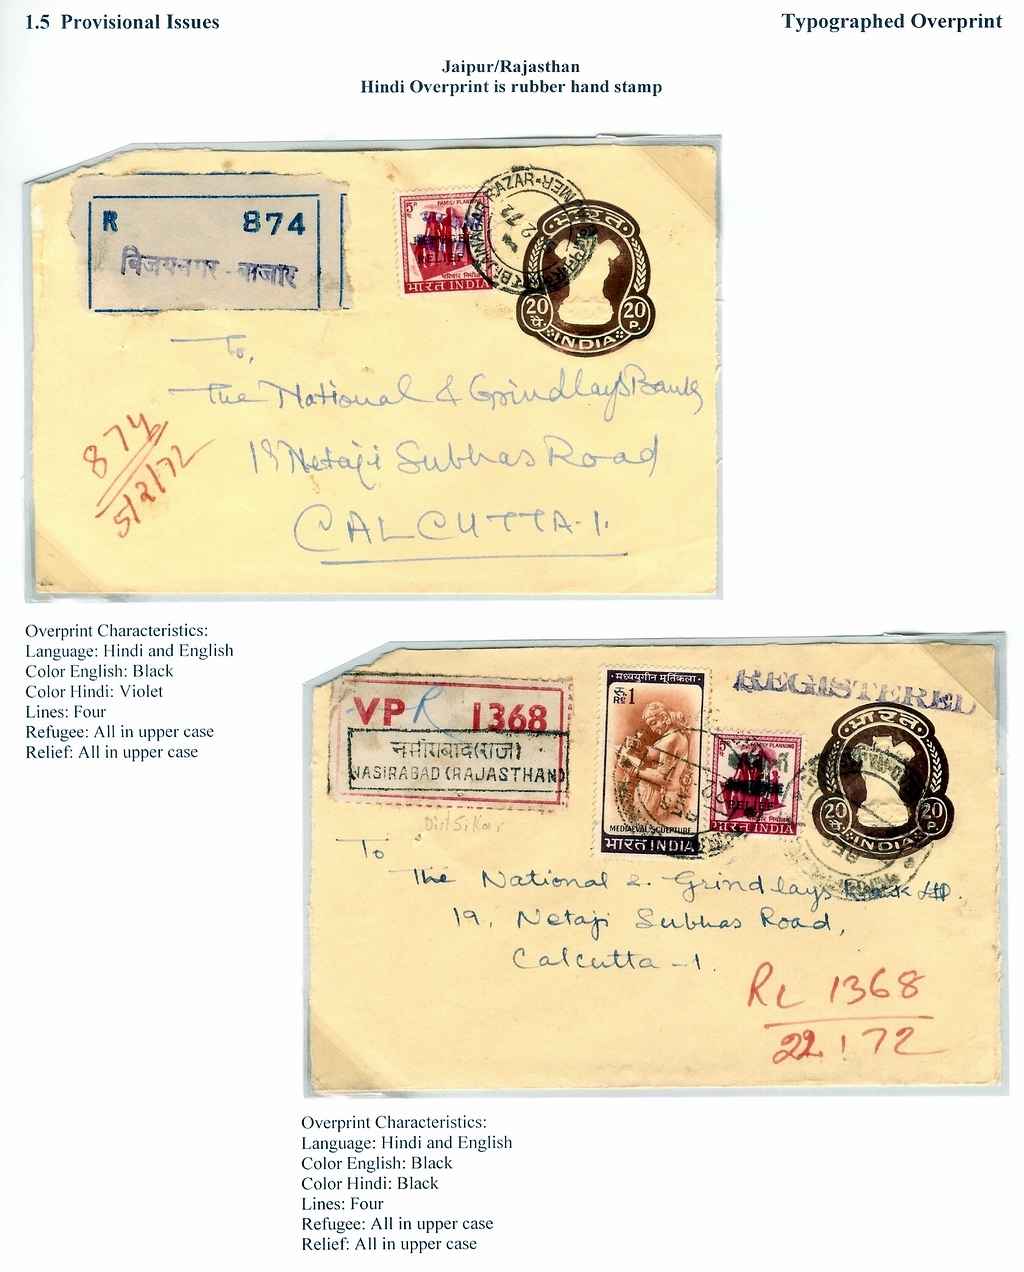 1.5 Provisional Issues
Typographed Overprint
Jaipur/Rajasthan
Hindi Overprint is rubber hand stamp
R 874
विजयनगर बाजार
5P FAMILY PLANNING
RELIEF
परिवार नियोजन
भारत INDIA
BIJAINAGAR BAZAR
भारत
20 पै. 20 P.
INDIA
To,
The National & Grindlays Bank
19 Netaji Subhas Road
CALCUTTA-1.
874
5/2/72
Overprint Characteristics:
Language: Hindi and English
Color English: Black
Color Hindi: Violet
Lines: Four
Refugee: All in upper case
Relief: All in upper case
VP R 1368
नसीराबाद (राज)
NASIRABAD (RAJASTHAN)
Dist Sikar
मध्ययुगीन मूर्तिकला
रु. 1
Rs
MEDIAEVAL SCULPTURE
भारत INDIA
5P FAMILY PLANNING
RELIEF
भारत INDIA
REGISTERED
भारत
20 पै. 20 P.
INDIA
To
The National & Grindlays Bank Ltd.
19, Netaji Subhas Road,
Calcutta-1.
RL 1368
22.1.72
Overprint Characteristics:
Language: Hindi and English
Color English: Black
Color Hindi: Black
Lines: Four
Refugee: All in upper case
Relief: All in upper case